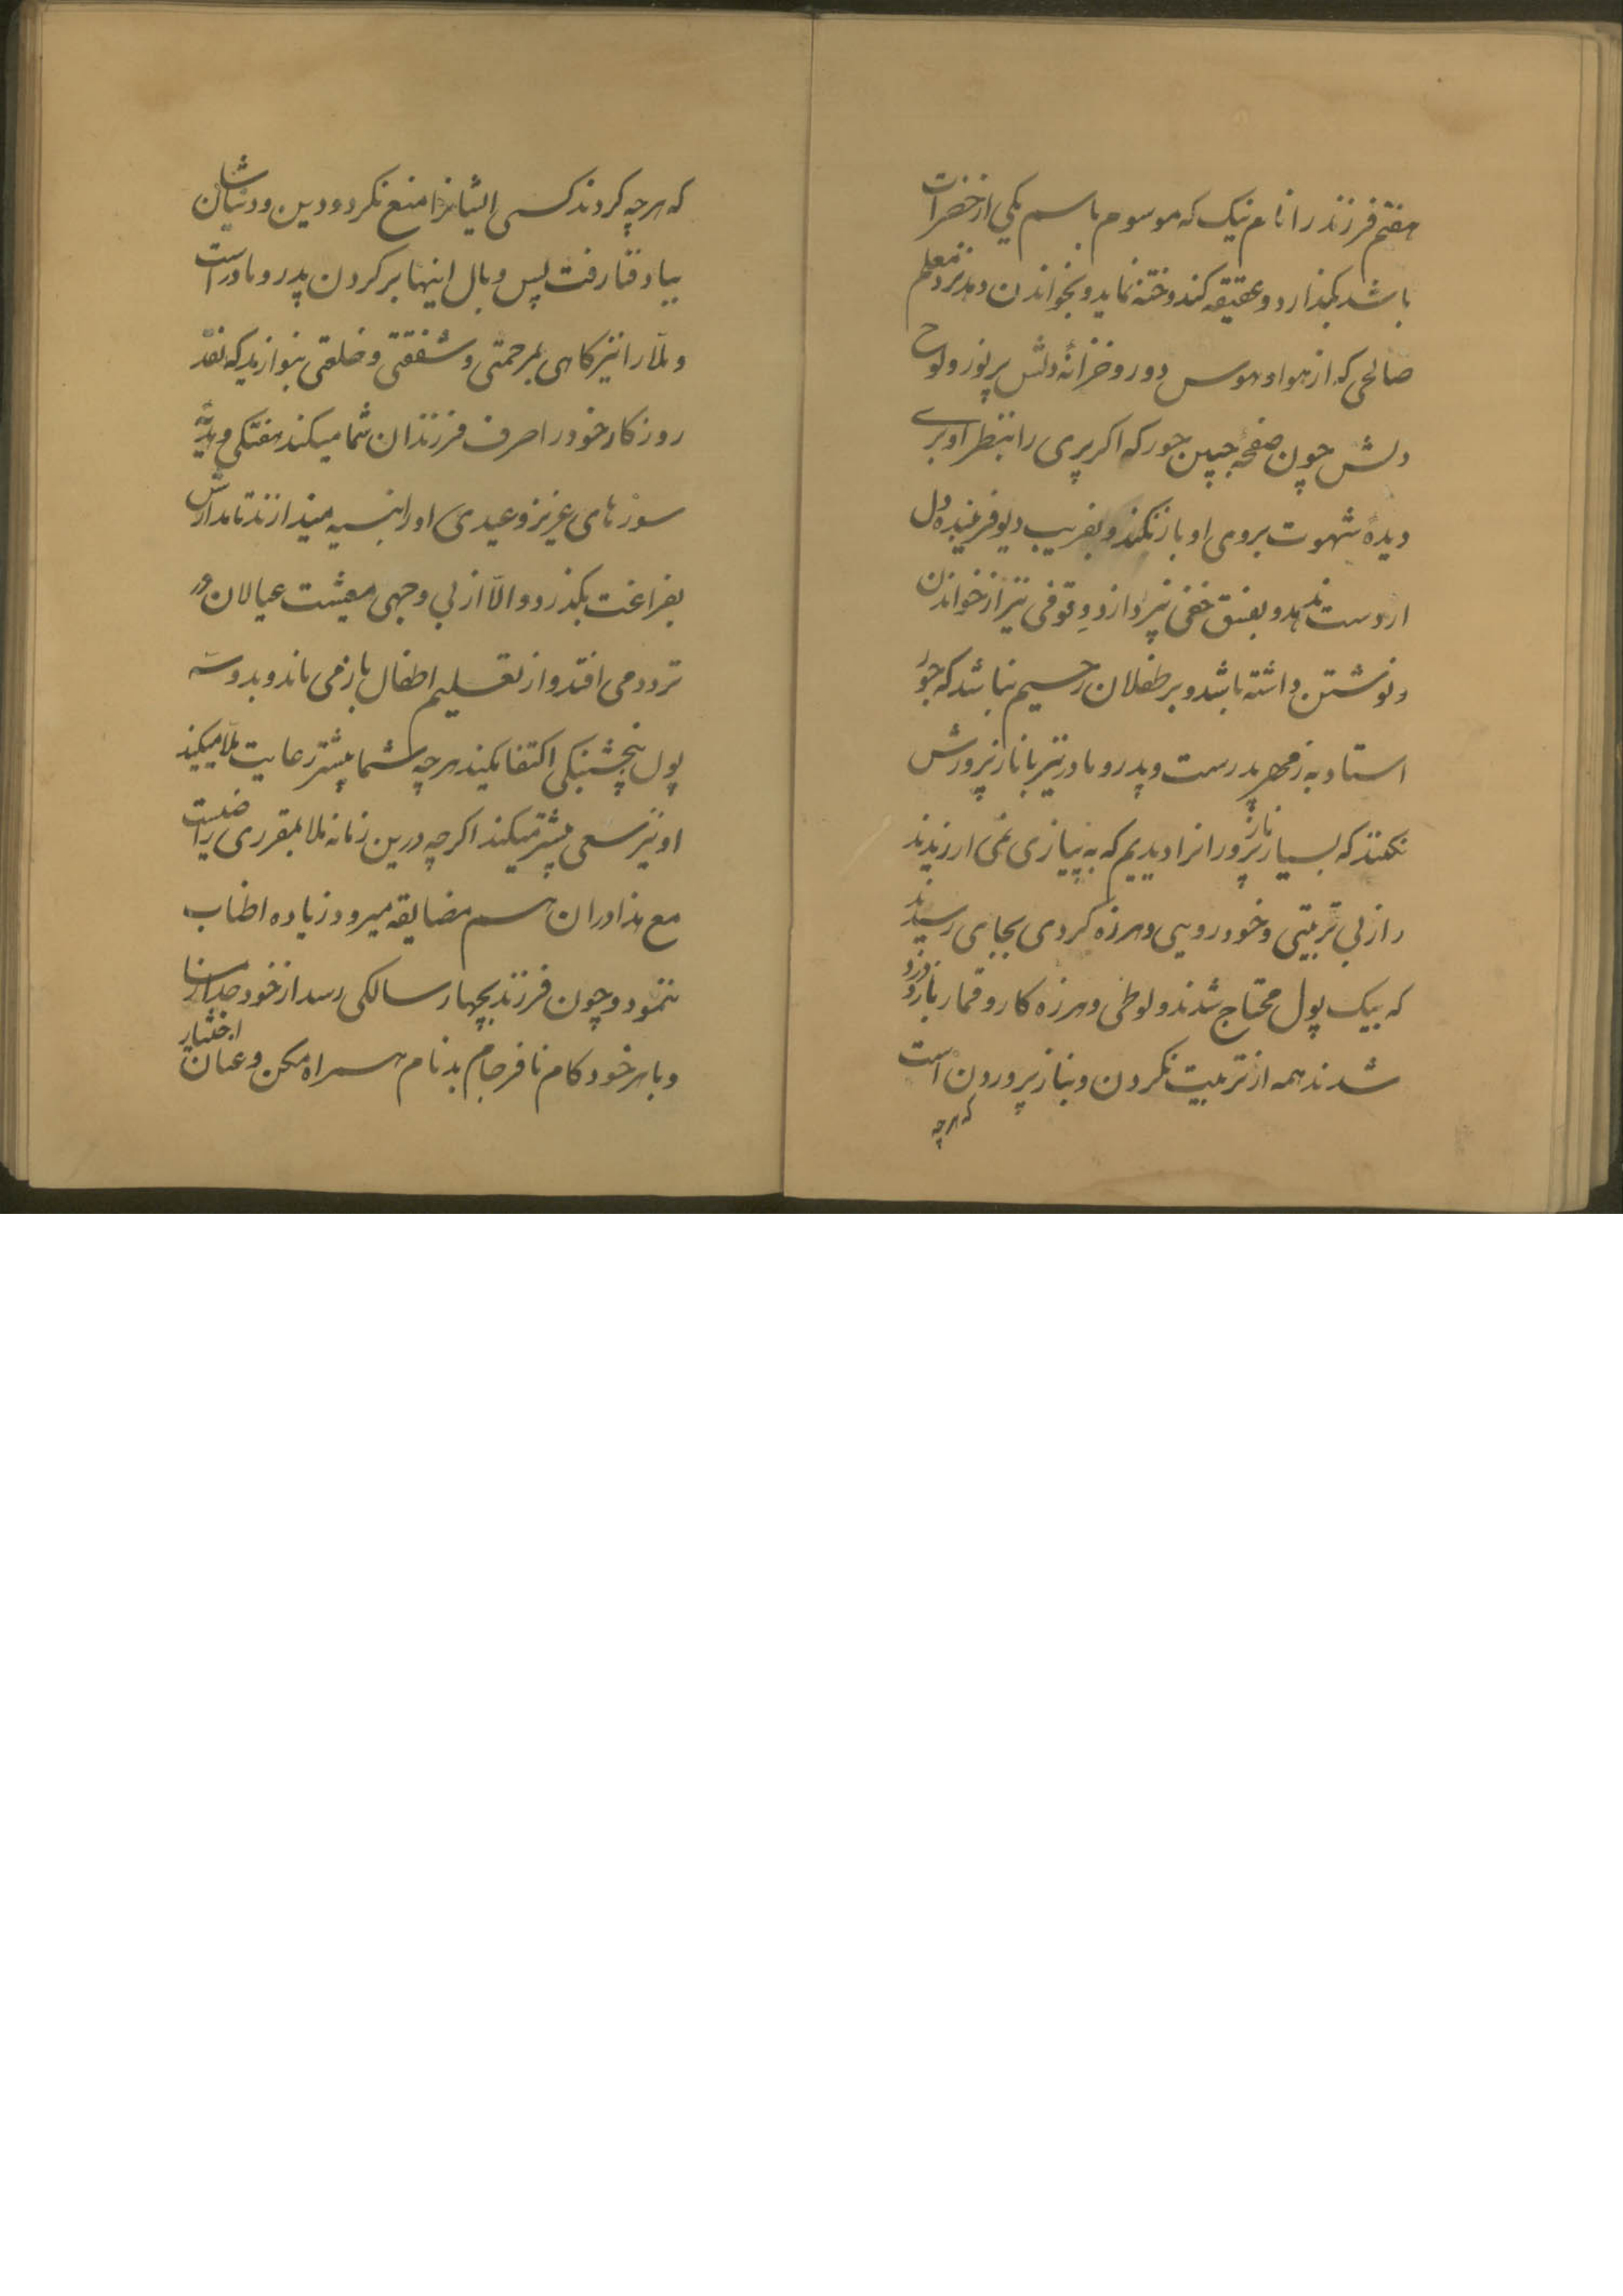 هفتم فرزند را نام نیک که موسوم باسم یکی از حضرات
باشد بگذارد و عقیقه کند و ختنه نماید و بخواندن دهد نزد معلم
صالحی که از هوا و هوس دور و خزانهٔ دلش پر نور و لوح
دلش چون صفحهٔ جبین حور که اگر پری را بنظر او بری
دیدهٔ شهوت بروی او باز نکند و بفریب دیو فریبنده دل
از دست ندهد و بفسق خفی نپردازد و وقوفی نیز از خواندن
و نوشتن داشته باشد و بر طفلان رحیم نباشد که جور
استاد به ز مهر پدرست و پدر و مادر نیز باناز پرورش
نکنند که بسیار نازپرورانرا دیدیم که به پیازی نمی ارزیدند
و از بی تربیتی و خودرویی و هرزه کردی بجایی رسیدند
که بیک پول محتاج شدند و لوطی و هرزه کار و قمارباز و دزد
شدند همه از تربیت نکردن و بناز پروردن است
که هرچه
که هرچه کردند کسی ایشانرا منع نکرد و دین و دنیاشان
بباد فنا رفت پس وبال اینها بر کردن پدر و مادر است
و ملا را نیز کاهی بمرحمتی و شفقتی و خلعتی بنوازید که نقد
روزکار خود را صرف فرزندان شما میکند هفتکی و هدیهٔ
سورهای عزیز و عیدی او را بنسیه میندازند تا مدارش
بفراغت بکذرد و الّا از بی وجهی معیشت عیالان در
تردد می افتد و از تعلیم اطفال باز می ماند و بدوسه
پول پنجشنبکی اکتفا مکنید هرچه شما بیشتر رعایت ملا میکنید
او نیز سعی بیشتر میکند اکرچه درین زمانه ملا بمقرری راضیست
مع هذا در ان هم مضایقه میرود زیاده اطناب
ننمود و چون فرزند بچهار سالکی رسد از خود جدا
و با هر خود کام نافرجام بدنام همراه مکن و عنان اختیار